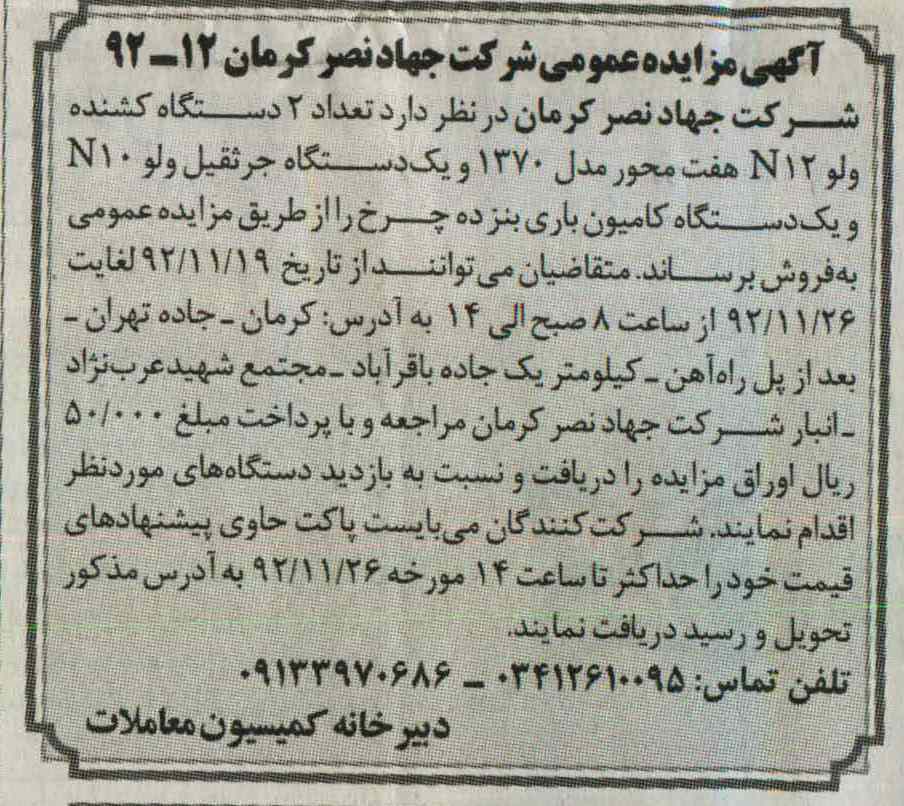 آگهی مزایده عمومی شرکت جهاد نصر کرمان ۱۲ـ۹۲
شرکت جهاد نصر کرمان در نظر دارد تعداد ۲ دستگاه کشنده
ولو N۱۲ هفت محور مدل ۱۳۷۰ و یک دستگاه جرثقیل ولو N۱۰
و یک دستگاه کامیون باری بنز ده چرخ را از طریق مزایده عمومی
به فروش برساند. متقاضیان می توانند از تاریخ ۹۲/۱۱/۱۹ لغایت
۹۲/۱۱/۲۶ از ساعت ۸ صبح الی ۱۴ به آدرس: کرمان ـ جاده تهران ـ
بعد از پل راه‌آهن ـ کیلومتر یک جاده باقرآباد ـ مجتمع شهید عرب‌نژاد
ـ انبار شرکت جهاد نصر کرمان مراجعه و با پرداخت مبلغ ۵۰/۰۰۰
ریال اوراق مزایده را دریافت و نسبت به بازدید دستگاه‌های موردنظر
اقدام نمایند. شرکت کنندگان می‌بایست پاکت حاوی پیشنهادهای
قیمت خود را حداکثر تا ساعت ۱۴ مورخه ۹۲/۱۱/۲۶ به آدرس مذکور
تحویل و رسید دریافت نمایند.
تلفن تماس: ۰۳۴۱۲۶۱۰۰۹۵ ـ ۰۹۱۳۳۹۷۰۶۸۶
دبیرخانه کمیسیون معاملات